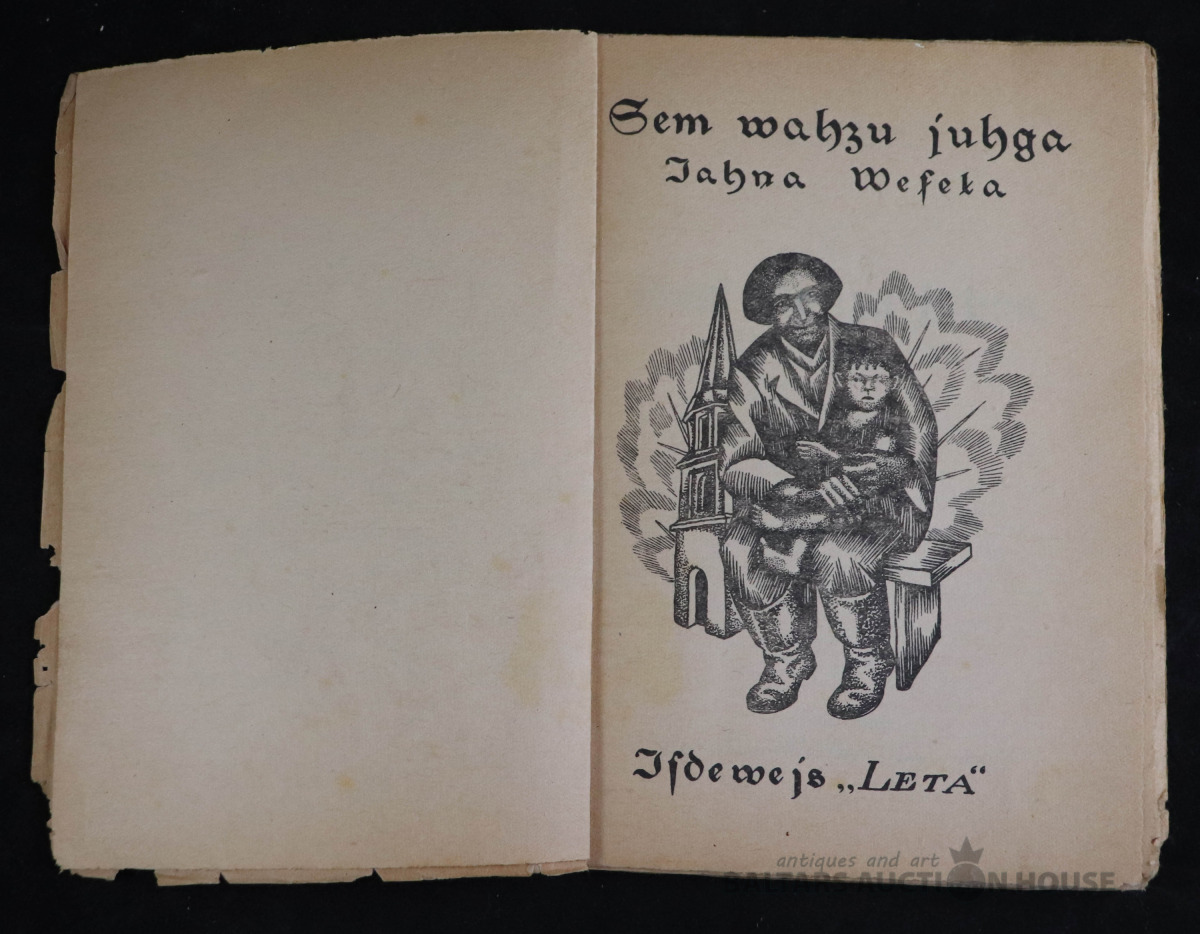 Sem wahzu juhga
Jahna Weseļa
Isdewejs „LETA“
antiques and art
BALTARS AUCTION HOUSE